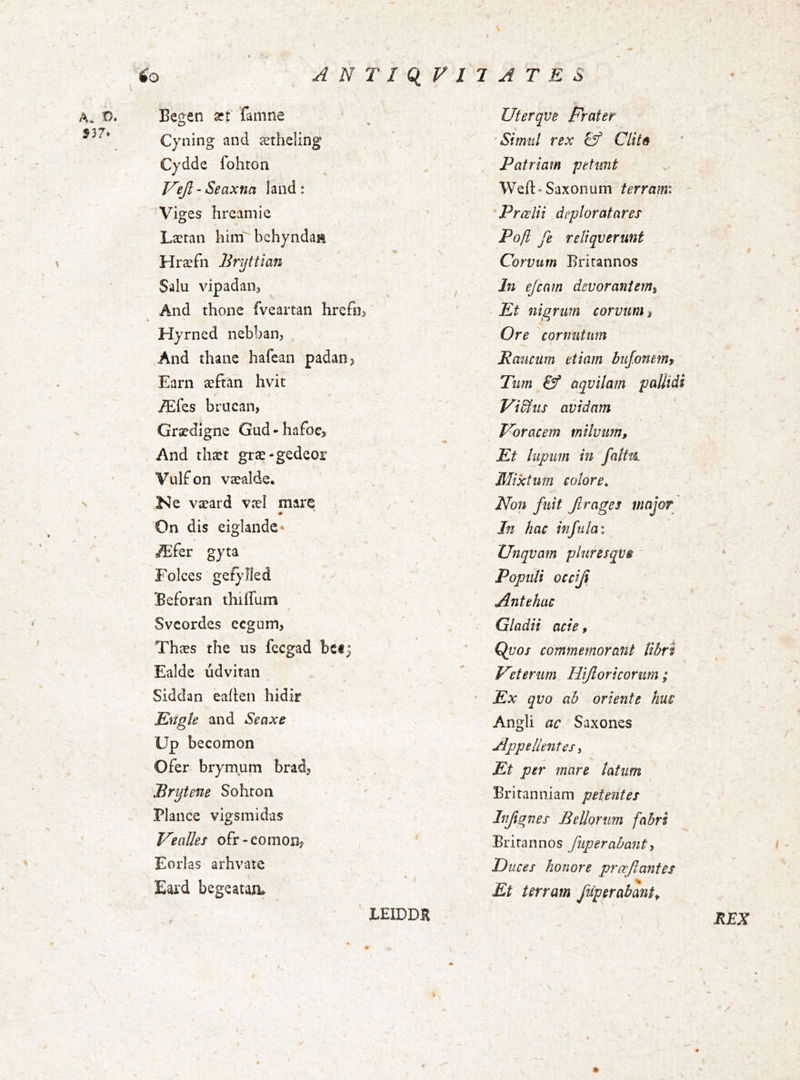 60 ANTIQVITATES
A. D.
937.
Begen æt ſamne
Cyning and ætheling
Cydde ſohton
Veſt-Seaxna land:
Viges hreamie
Lætan him behyndan
Hræfn Bryttian
Salu vipadan,
And thone ſveartan hrefn,
Hyrned nebban,
And thane haſean padan,
Earn æftan hvit
Æſes brucan,
Grædigne Gud-hafoc,
And thæt græ-gedeor
Vulf on væalde.
Ne væard væl mare
On dis eiglande.
Æfer gyta
Folces gefylled
Beforan thiſſum
Sveordes ecgum,
Thæs the us ſecgad bec;
Ealde údvitan
Siddan eaſten hidir
Engle and Seaxe
Up becomon
Ofer brymum brad,
Brytene Sohton
Vlance vigsmidas
Vealles ofr-comon,
Eorlas arhvate
Eard begeatan.
LEIDDR
Uterqve Frater
Simul rex & Clito
Patriam petunt
Weſt-Saxonum terram:
Prælii deploratores
Poſt ſe reliqverunt
Corvum Britannos
In eſcam devorantem,
Et nigrum corvum,
Ore cornutum
Raucum etiam bufonem,
Tum & aqvilam pallidi
Victus avidam
Voracem milvum,
Et lupum in ſaltu
Mixtum colore.
Non fuit ſtrages major
In hac inſula:
Unqvam pluresqve
Populi occiſi
Antehac
Gladii acie,
Qvos commemorant libri
Veterum Hiſtoricorum;
Ex qvo ab oriente huc
Angli ac Saxones
Appellentes,
Et per mare latum
Britanniam petentes
Inſignes Bellorum fabri
Britannos ſuperabant,
Duces honore præſtantes
Et terram ſuperabant,
REX